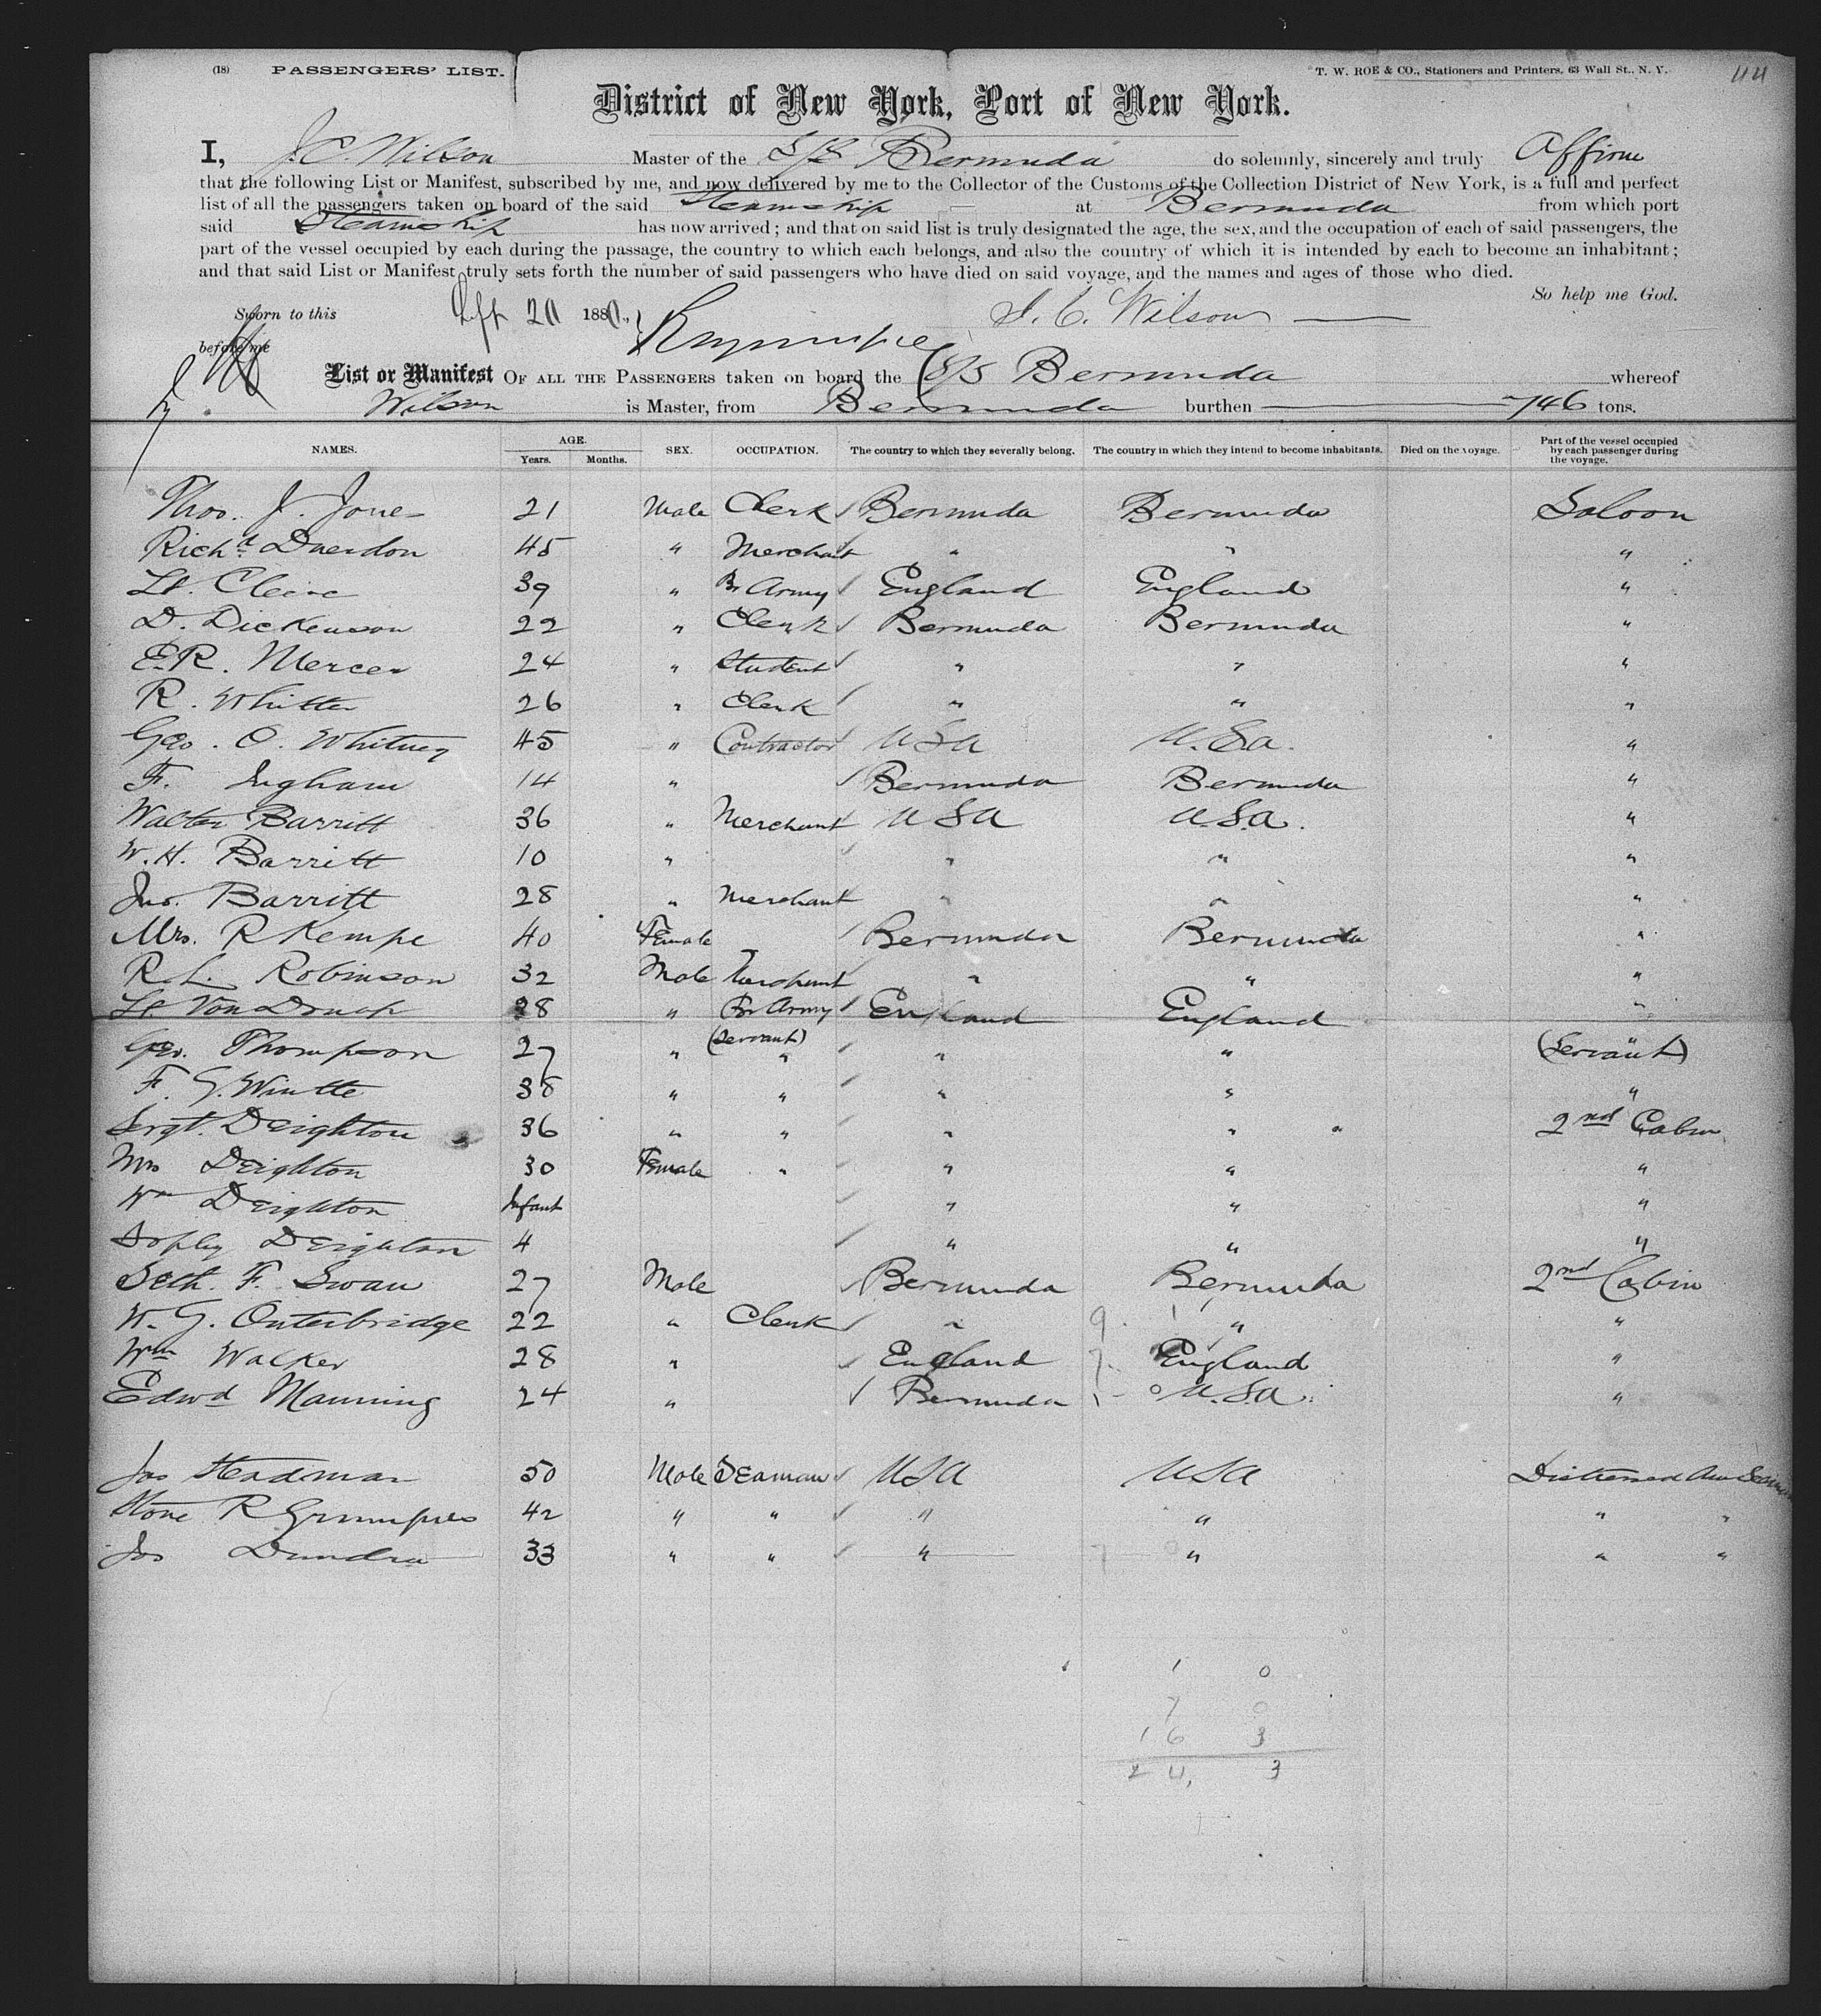 (18) PASSENGERS' LIST. T. W. ROE & CO., Stationers and Printers, 63 Wall St., N. Y. 44
District of New York, Port of New York.
I, J.C. Wilson Master of the S/S Bermuda do solemnly, sincerely and truly Affirm
that the following List or Manifest, subscribed by me, and now delivered by me to the Collector of the Customs of the Collection District of New York, is a full and perfect
list of all the passengers taken on board of the said Steamship at Bermuda from which port
said Steamship has now arrived; and that on said list is truly designated the age, the sex, and the occupation of each of said passengers, the
part of the vessel occupied by each during the passage, the country to which each belongs, and also the country of which it is intended by each to become an inhabitant;
and that said List or Manifest truly sets forth the number of said passengers who have died on said voyage, and the names and ages of those who died.
So help me God.
Sworn to this 188 J. C. Wilson
before me
List or Manifest OF ALL THE PASSENGERS taken on board the S/S Bermuda whereof
Wilson is Master, from Bermuda burthen 746 tons.
NAMES. AGE. Years. Months. SEX. OCCUPATION. The country to which they severally belong. The country in which they intend to become inhabitants. Died on the voyage. Part of the vessel occupied by each passenger during the voyage.
Thos. J. Jones 21 Male Clerk Bermuda Bermuda Saloon
Richd 45 " Merchant " " "
Lt. 39 " Br Army England England "
D. Dickenson 22 " Clerk Bermuda Bermuda "
E.R. Mercer 24 " Student " " "
R. Whitter 26 " Clerk " " "
Geo. O. Whitney 45 " Contractor USA U.S.a. "
F. Ingham 14 " Bermuda Bermuda "
Walter Barritt 36 " Merchant USA U.S.a. "
W. H. Barritt 10 " " " "
Jno. Barritt 28 " Merchant " " "
Mrs. R Kempe 40 Female Bermuda Bermuda "
R. L. Robinson 32 Male Merchant " " "
Lt Von 28 " Br Army England England "
Geo. Thompson 27 " (Servant) " " " (Servant)
F. G. 38 " " " " "
Sergt. Deighton 36 " " " " " 2nd Cabin
Mrs Deighton 30 Female " " " "
Wm Deighton Infant " " "
Sophy Deighton 4 " " "
Seth. F. Swan 27 Male Bermuda Bermuda 2nd Cabin
W. G. Outerbridge 22 " Clerk " " "
Wm Walker 28 " England England "
Edwd Manning 24 " Bermuda U.S.a. "
Jas Steadman 50 Male Seaman USA USA Distressed Am Seaman
R 42 " " " " " "
Jos Dundra 33 " " " " " "
1 0
7 0
16 3
24, 3